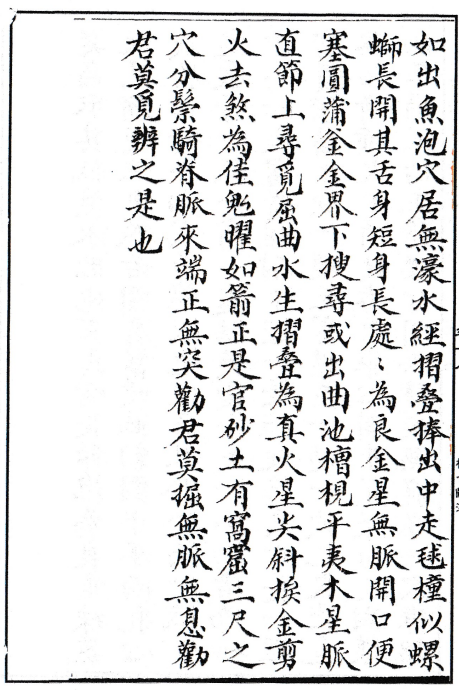 如出魚泡穴居無濠水經摺疊捧出中走毬橦似螺
螄長開其舌身短身長處〻為良金星無脈開口便
塞圓蒲釜金界下搜尋或出曲池槽梘平夷木星脈
直節上尋覓屈曲水生摺疊為真火星尖斜挨金剪
火去煞為佳鬼曜如箭正是官砂土有窩窟三尺之
穴分鬃騎脊脈來端正無突勸君莫掘無脈無息勸
君莫覓辨之是也